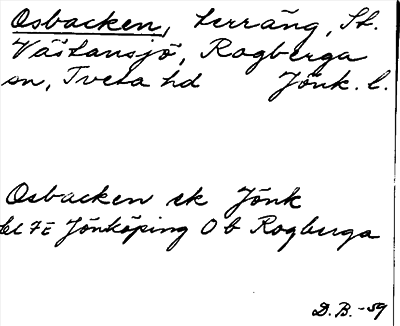 Osbacken, terräng, St.
Västansjö, Rogberga
sn, Tveta hd Jönk. l.
Osbacken ek Jönk
bl 7E Jönköping Ob Rogberga
D.B. -59